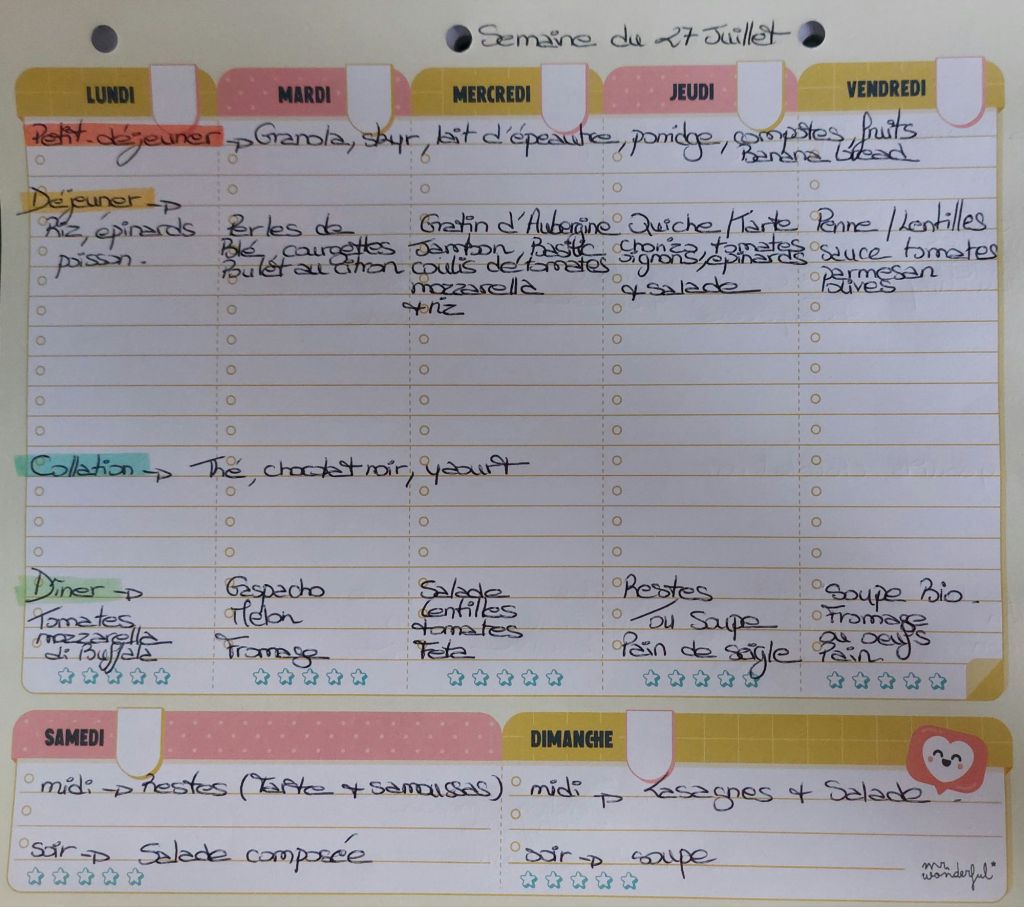 Semaine du 27 Juillet
LUNDI MARDI MERCREDI JEUDI VENDREDI
Petit-déjeuner → Granola, skyr, lait d'épeautre, porridge, compotes, fruits
Banana bread
Déjeuner →
Riz, épinards
poisson.
Perles de
Blé, courgettes
Poulet au citron
Gratin d'Aubergine
Jambon, Basilic
coulis de tomates
mozzarella
+ riz
Quiche / Tarte
chorizo, tomates
oignons, épinards
+ salade
Penne / Lentilles
sauce tomates
parmesan
olives
Collation → Thé, chocolat noir, yaourt
Dîner →
Tomates
mozzarella
di Buffala
Gaspacho
Melon
Fromage
Salade
Lentilles
tomates
Feta
Restes
ou Soupe
Pain de seigle
Soupe Bio.
Fromage
ou oeufs
Pain
SAMEDI
midi → Restes (Tarte + samoussas)
soir → Salade composée
DIMANCHE
midi → Lasagnes + Salade.
soir → soupe
mr. wonderful*